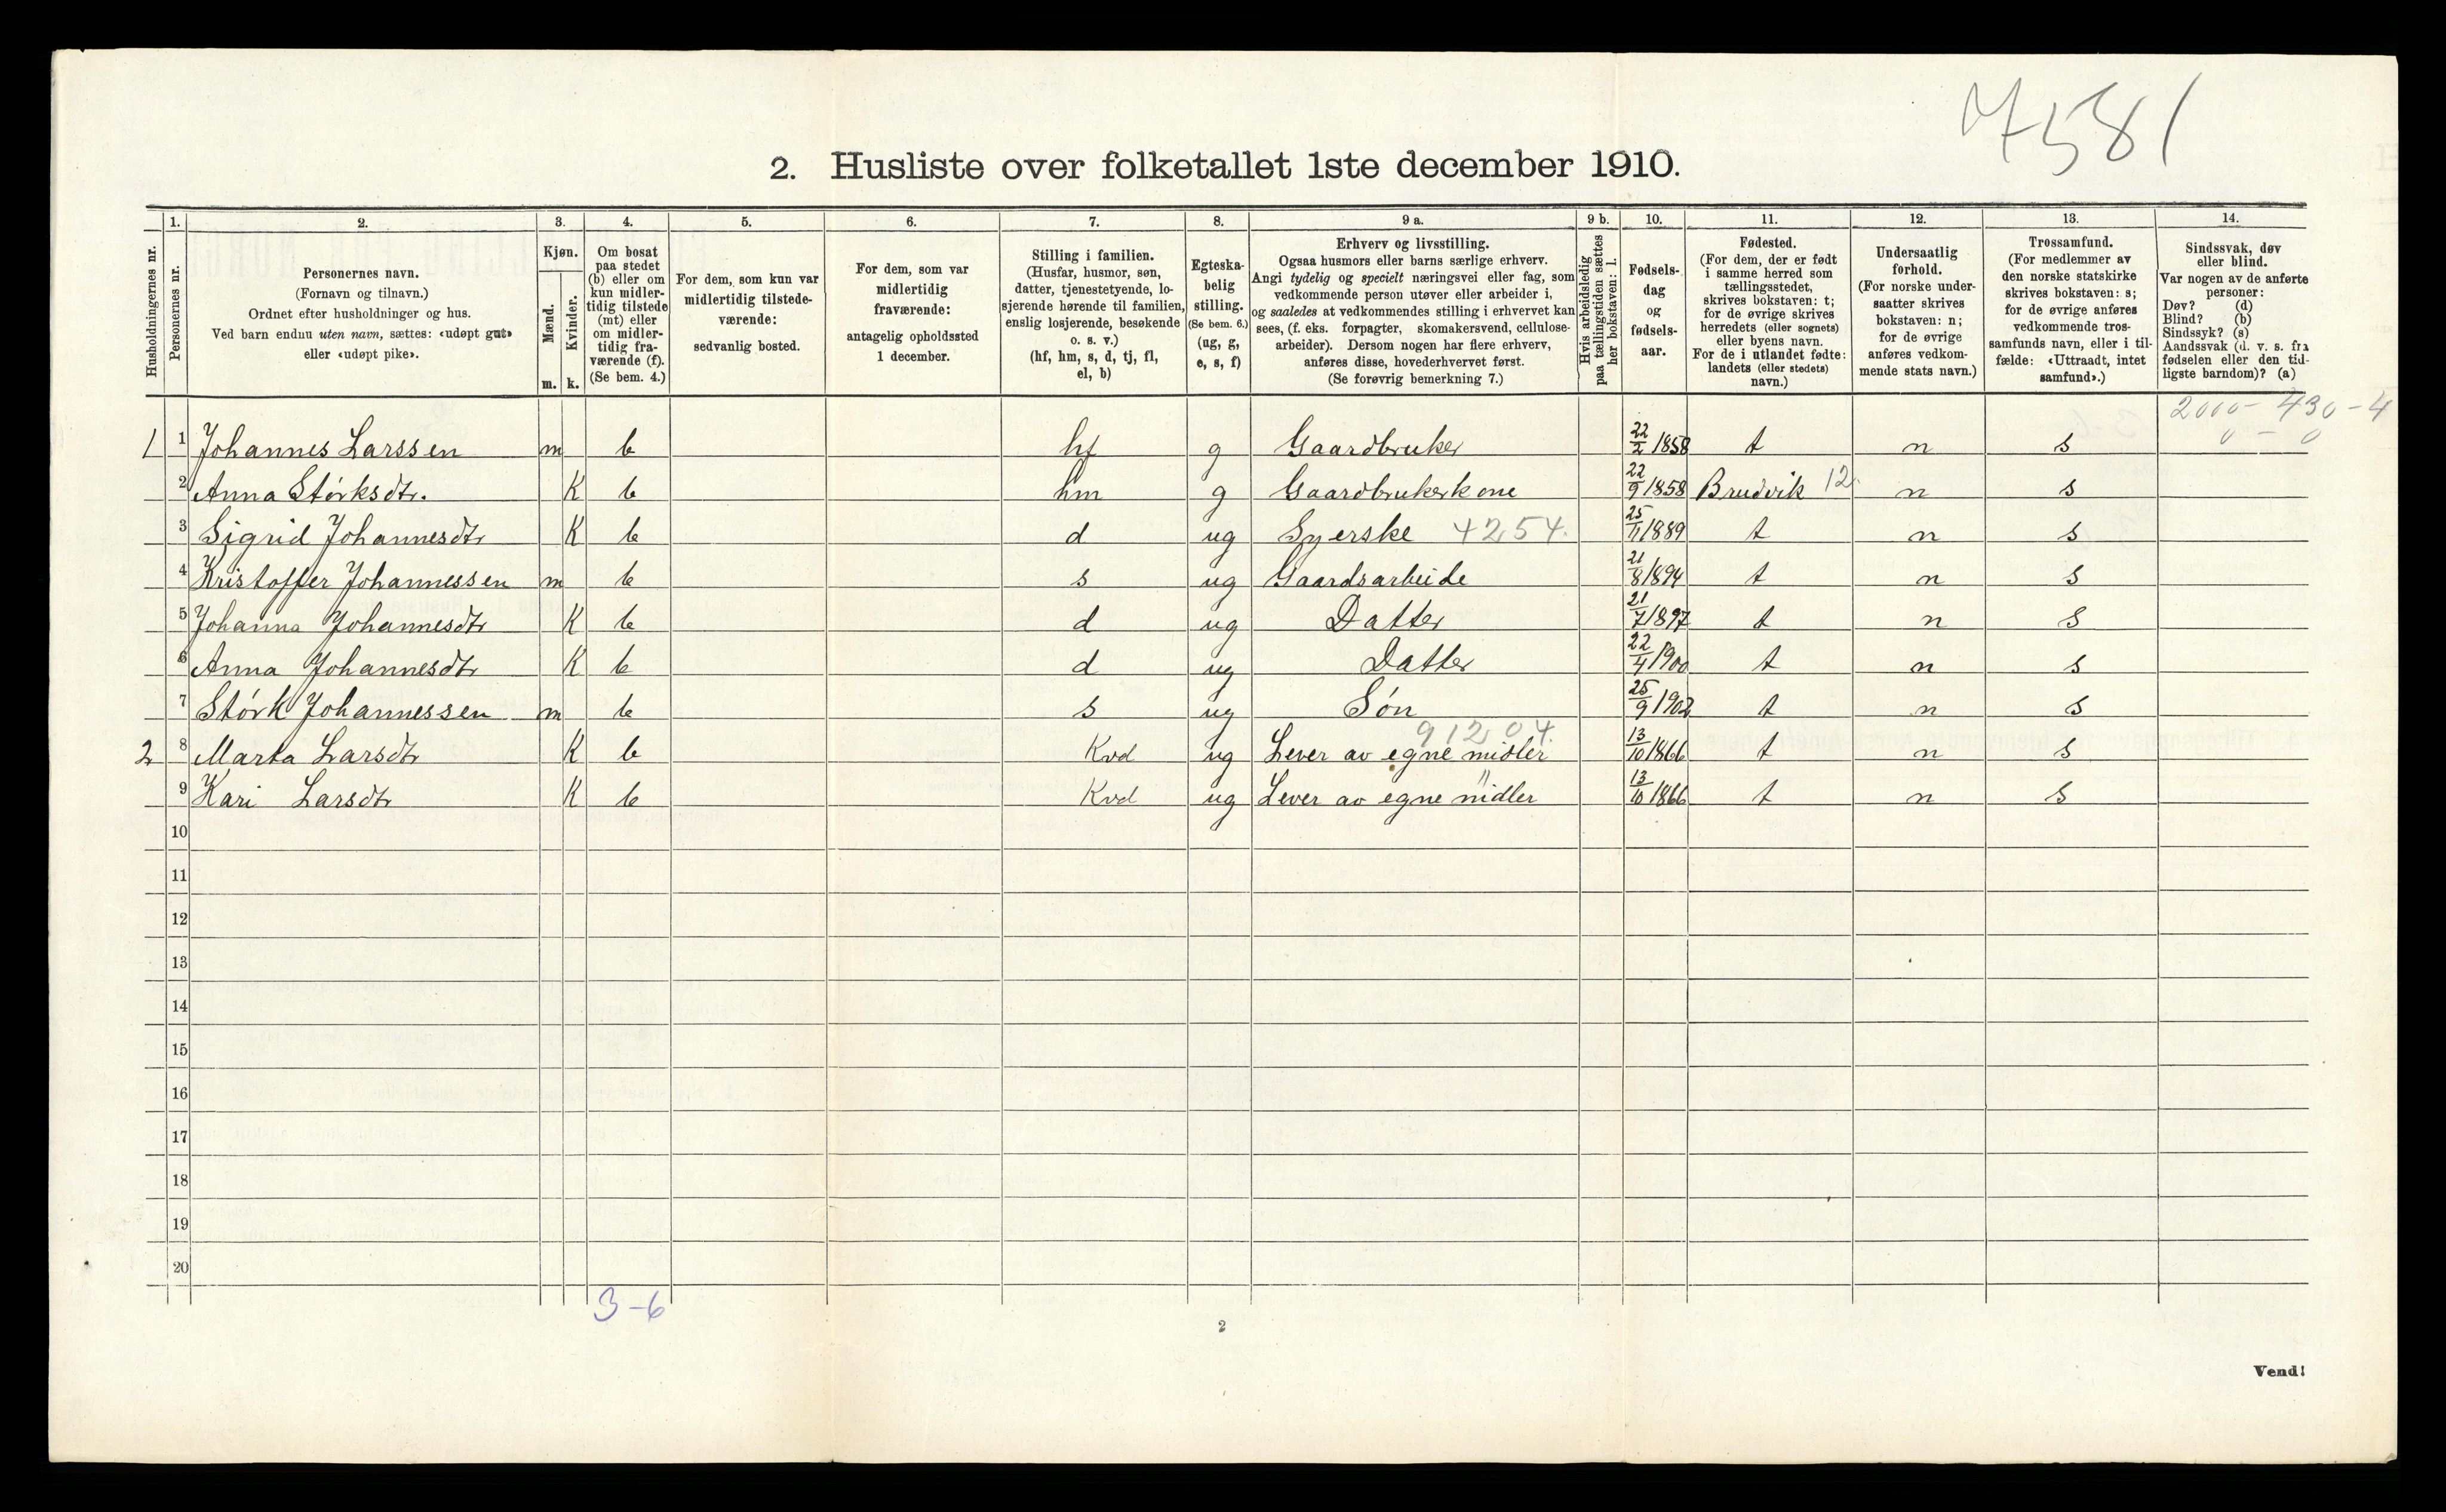 7581
2. Husliste over folketallet 1ste december 1910.
1. 2. 3. 4. 5. 6. 7. 8. 9 a. 9 b. 10. 11. 12. 13. 14.
Husholdningernes nr.
Personernes nr.
Personernes navn.
(Fornavn og tilnavn.)
Ordnet efter husholdninger og hus.
Ved barn endnu uten navn, sættes: «udøpt gut»
eller «udøpt pike».
Kjøn.
Mænd.
Kvinder.
m. k.
Om bosat
paa stedet
(b) eller om
kun midler-
tidig tilstede
(mt) eller
om midler-
tidig fra-
værende (f).
(Se bem. 4.)
For dem, som kun var
midlertidig tilstede-
værende:
sedvanlig bosted.
For dem, som var
midlertidig
fraværende:
antagelig opholdssted
1 december.
Stilling i familien.
(Husfar, husmor, søn,
datter, tjenestetyende, lo-
sjerende hørende til familien,
enslig losjerende, besøkende
o. s. v.)
(hf, hm, s, d, tj, fl,
el, b)
Egteska-
belig
stilling.
(Se bem. 6.)
(ug, g,
e, s, f)
Erhverv og livsstilling.
Ogsaa husmors eller barns særlige erhverv.
Angi tydelig og specielt næringsvei eller fag, som
vedkommende person utøver eller arbeider i,
og saaledes at vedkommendes stilling i erhvervet kan
sees, (f. eks. forpagter, skomakersvend, cellulose-
arbeider). Dersom nogen har flere erhverv,
anføres disse, hovederhvervet først.
(Se forøvrig bemerkning 7.)
Hvis arbeidsledig
paa tællingstiden sættes
her bokstaven: l.
Fødsels-
dag
og
fødsels-
aar.
Fødested.
(For dem, der er født
i samme herred som
tællingsstedet,
skrives bokstaven: t;
for de øvrige skrives
herredets (eller sognets)
eller byens navn.
For de i utlandet fødte:
landets (eller stedets)
navn.)
Undersaatlig
forhold.
(For norske under-
saatter skrives
bokstaven: n;
for de øvrige
anføres vedkom-
mende stats navn.)
Trossamfund.
(For medlemmer av
den norske statskirke
skrives bokstaven: s;
for de øvrige anføres
vedkommende tros-
samfunds navn, eller i til-
fælde: «Uttraadt, intet
samfund».)
Sindssvak, døv
eller blind.
Var nogen av de anførte
personer:
Døv? (d)
Blind? (b)
Sindssyk? (s)
Aandssvak (d. v. s. fra
fødselen eller den tid-
ligste barndom)? (a)
2000 - 430 - 4
0 - 0
1 1 Johannes Larssen m b hf g Gaardbruker 22/2 1858 t n s
2 Anna Størksdtr. K b hm g Gaardbrukerkone 22/9 1858 Brudvik 12 n s
3 Sigrid Johannesdtr K b d ug Syerske 4254. 25/11 1889 t n s
4 Kristoffer Johannessen m b s ug Gaardsarbeide 21/8 1894 t n s
5 Johanna Johannesdtr K b d ug Datter 21/7 1897 t n s
6 Anna Johannesdtr K b d ug Datter 22/4 1900 t n s
7 Størk Johannessen m b s ug Søn 25/9 1902 t n s
91204.
2 8 Marta Larsdtr K b Kvd ug Lever av egne midler 13/10 1866 t n s
9 Kari Larsdtr K b Kvd ug Lever av egne midler " 13/10 1866 t n s
10
11
12
13
14
15
16
17
18
19
20
3-6
2
Vend!